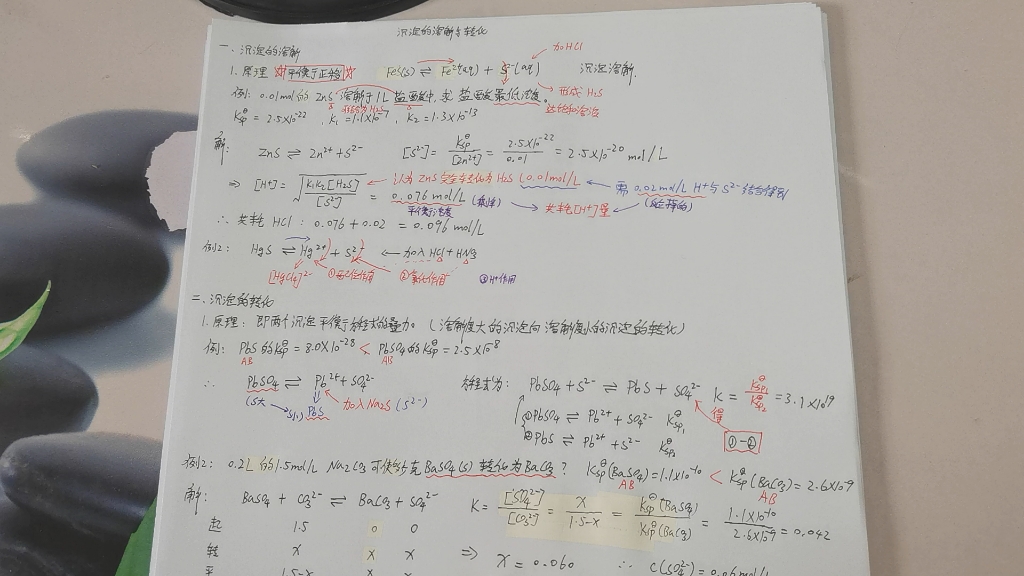 沉淀的溶解与转化
一. 沉淀的溶解
加HCl
1. 原理 平衡于正移 FeS(s) ⇌ Fe²⁺(aq) + S²⁻(aq) 沉淀溶解.
例1: 0.01mol的 ZnS 溶解于1L 盐酸中, 求盐酸最低浓度。
形成 H₂S
Ksp^θ = 2.5×10⁻²², K₁ = 1.1×10⁻⁷, K₂ = 1.3×10⁻¹³
解: ZnS ⇌ Zn²⁺ + S²⁻ [S²⁻] = Ksp^θ/[Zn²⁺] = 2.5×10⁻²²/0.01 = 2.5×10⁻²⁰ mol/L
⇒ [H⁺] = √(K₁K₂[H₂S]/[S²⁻]) = 0.076 mol/L
认为 ZnS 完全转化为 H₂S (0.01mol/L) ← 需 0.02mol/L H⁺与 S²⁻结合
平衡浓度 → 共耗[H⁺]量 ←
∴ 共耗 HCl: 0.076 + 0.02 = 0.096 mol/L
例2: HgS ⇌ Hg²⁺ + S²⁻ ← 加入 HCl + HNO₃
[HgCl₄]²⁻ ①配位作用 ②氧化作用 ③H⁺作用
二. 沉淀的转化
1. 原理: 即两个沉淀平衡 (溶解度大的沉淀向溶解度小的沉淀的转化)
例1: PbS的Ksp = 8.0×10⁻²⁸ < PbSO₄的Ksp^θ = 2.5×10⁻⁸
AB AB
∴ PbSO₄ ⇌ Pb²⁺ + SO₄²⁻ 方程式为: PbSO₄ + S²⁻ ⇌ PbS + SO₄²⁻ K = Ksp₁^θ/Ksp₂^θ = 3.1×10¹⁹
(S大 → S小) PbS 加入Na₂S (S²⁻)
①PbSO₄ ⇌ Pb²⁺ + SO₄²⁻ Ksp₁^θ 得
②PbS ⇌ Pb²⁺ + S²⁻ Ksp₂^θ ①-②
例2: 0.2L的1.5mol/L Na₂CO₃可使多少克BaSO₄(s) 转化为BaCO₃? Ksp^θ(BaSO₄) = 1.1×10⁻¹⁰ < Ksp^θ(BaCO₃) = 2.6×10⁻⁹
AB AB
解: BaSO₄ + CO₃²⁻ ⇌ BaCO₃ + SO₄²⁻ K = [SO₄²⁻]/[CO₃²⁻] = x/(1.5-x) = Ksp^θ(BaSO₄)/Ksp^θ(BaCO₃) = 1.1×10⁻¹⁰/2.6×10⁻⁹ = 0.042
起 1.5 0 0
转 x x x ⇒ x = 0.060 ∴ c(SO₄²⁻) = 0.06mol/L
平 1.5-x x x